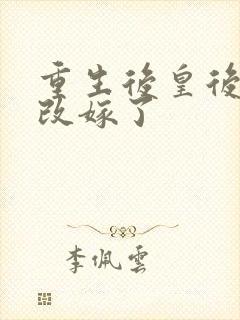 重生後皇後
改嫁了
李佩雲